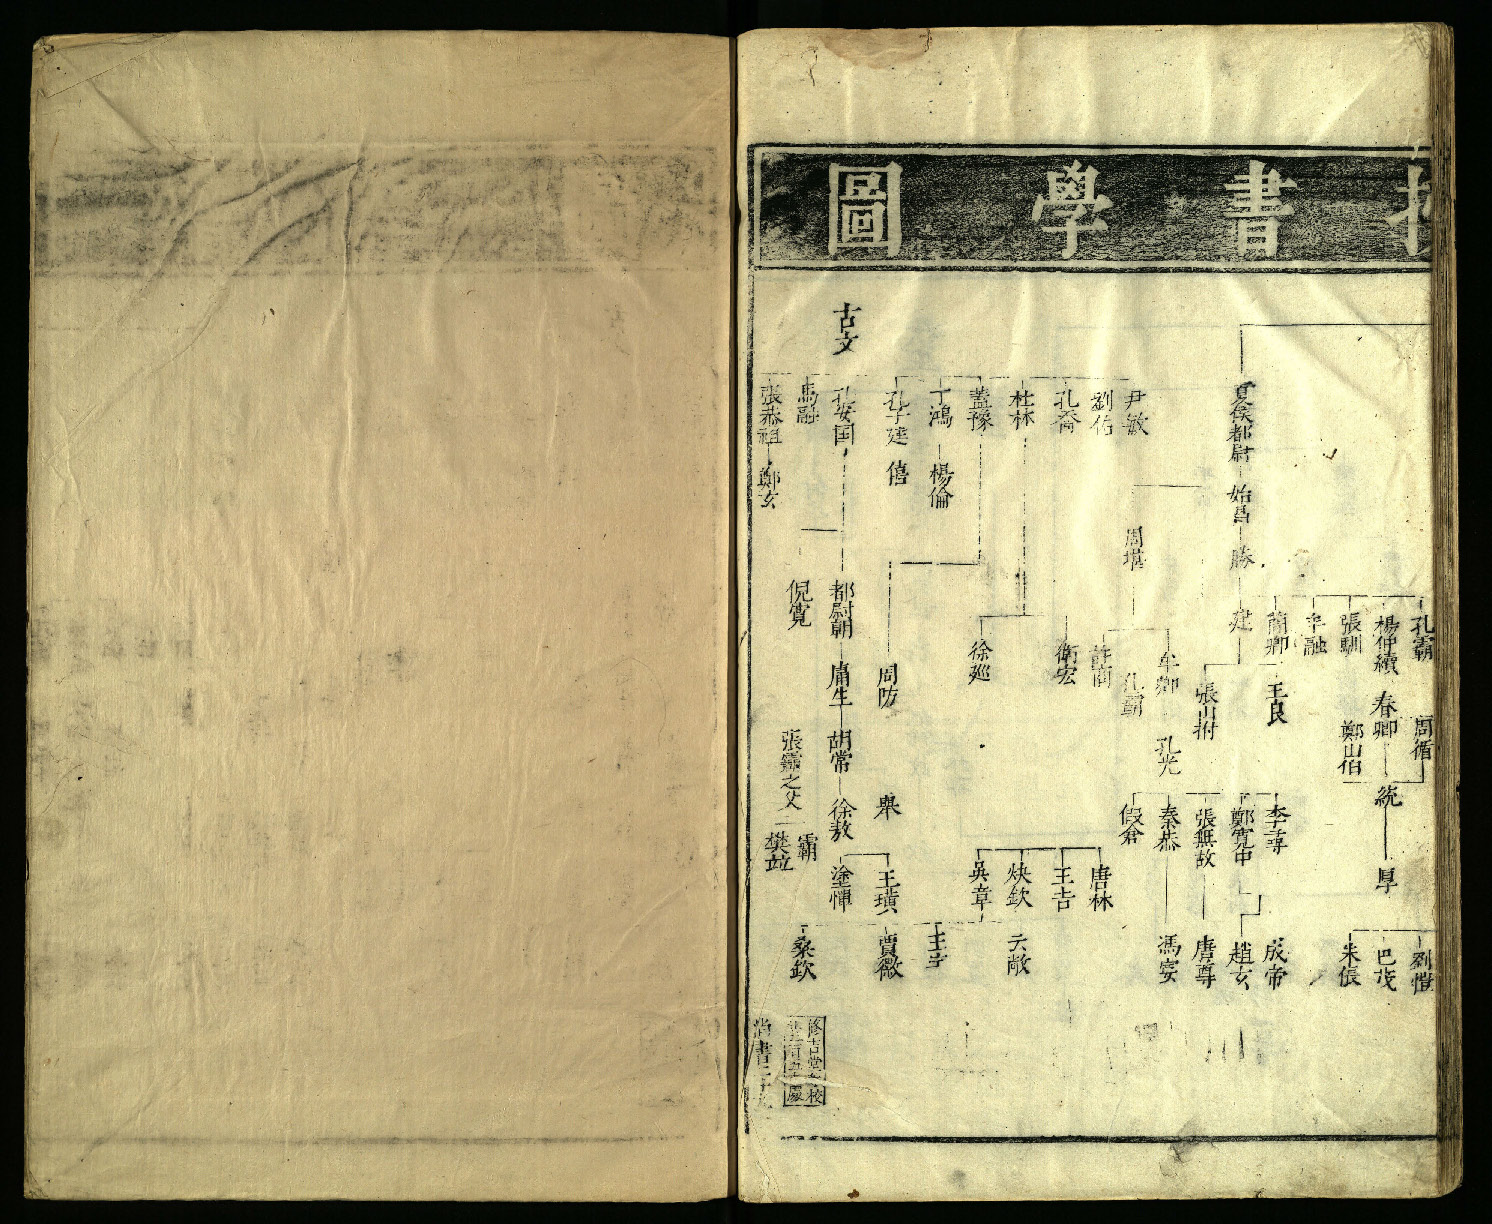 授書學圖
夏侯都尉
始昌
勝
建
孔霸
楊仲續
張馴
牟融
簡卿
周循
春卿
鄭山伯
王良
張山拊
統
厚
劉愷
巴茂
朱倀
李尋
鄭寬中
張無故
秦恭
假倉
成帝
趙玄
唐尊
馮宴
周堪
牟卿
孔霸
許商
孔光
唐林
王吉
炔欽
吳章
云敞
王宇
古文
尹敏
劉佑
孔喬
杜林
蓋豫
丁鴻
孔子建
孔安国
馬融
張恭祖
楊倫
僖
鄭玄
衛宏
徐巡
周防
舉
都尉朝
倪寬
庸生
胡常
徐敖
王璜
塗惲
賈徽
桑欽
張霸之父
霸
樊並